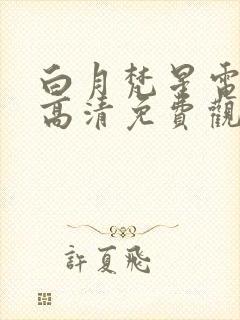 白月梵星電
高清免費觀
許夏飛